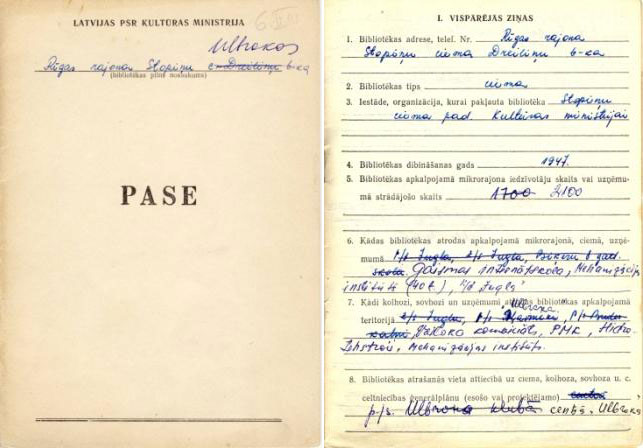 LATVIJAS PSR KULTŪRAS MINISTRIJA
Ulbrokas
Rīgas rajona Stopiņu c. Dreiliņu b-ka
(bibliotēkas pilns nosaukums)
PASE
I. VISPĀRĒJĀS ZIŅAS
1. Bibliotēkas adrese, telef. Nr. Rīgas rajona
Stopiņu ciema Dreiliņu b-ka
2. Bibliotēkas tips ciema
3. Iestāde, organizācija, kurai pakļauta bibliotēka Stopiņu
ciema pad. Kultūras ministrijai
4. Bibliotēkas dibināšanas gads 1947.
5. Bibliotēkas apkalpojamā mikrorajona iedzīvotāju skaits vai uzņēmu-
mā strādājošo skaits 1700 2100
6. Kādas bibliotēkas atrodas apkalpojamā mikrorajonā, ciemā, uzņē-
mumā p/s Jugla, 8 gad.
skola. internātskola, Mehanizācijas
institūti (40 t.), Jugla
7. Kādi kolhozi, sovhozi un uzņēmumi atrodas bibliotēkas apkalpojamā
Ulbroka
teritorijā Jugla,
PMK, Hidro-
Mehanizācijas institūts.
8. Bibliotēkas atrašanās vieta attiecībā uz ciema, kolhoza, sovhoza u. c.
celtniecības ģenerālplānu (esošo vai projektējamo) centrā
p/s. Ulbroka klubā centrā, Ulbroka